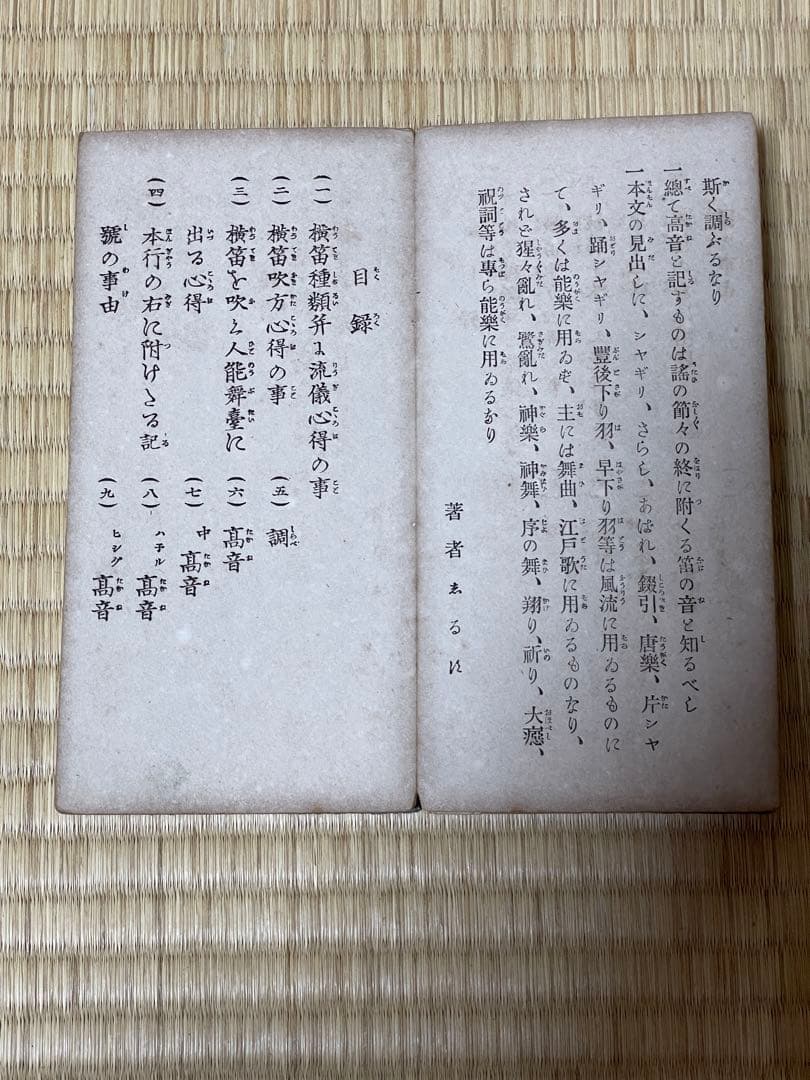 斯く調ぶるなり
一總て高音と記すものは謠の節々の終に附くる笛の音と知るべし
一本文の見出しに、シャギリ、さらし、あばれ、錣引、唐樂、片シャ
ギリ、踊シャギリ、豐後下り羽、早下り羽等は風流に用ゐるものに
て、多くは能樂に用ゐず、主には舞曲、江戸歌に用ゐるものなり、
されど猩々亂れ、鷺亂れ、神樂、神舞、序の舞、翔り、祈り、大癋、
祝詞等は專ら能樂に用ゐるなり
著者ゑるす
目録
(一)橫笛種類并に流儀心得の事
(二)橫笛吹方心得の事
(三)橫笛を吹く人能舞臺に
出る心得
(四)本行の右に附けたる記
號の事由
(五)調
(六)髙音
(七)中髙音
(八)ハチル髙音
(九)ヒシグ髙音